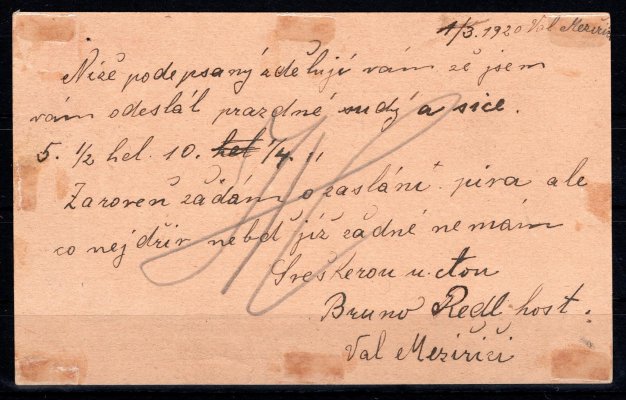 1/3. 1920 Val Meziřiči
Niže podepsaný zdělují vám že jsem
vám odeslál prazdné sudý a sice.
5. 1/2 hel. 10. hel 1/4. "
Zaroveň žádám o zaslání piva ale
co nejdřiv nebď již žádné nemám
Sveškerou uctou
Bruno Redl host.
Val Meziřiči